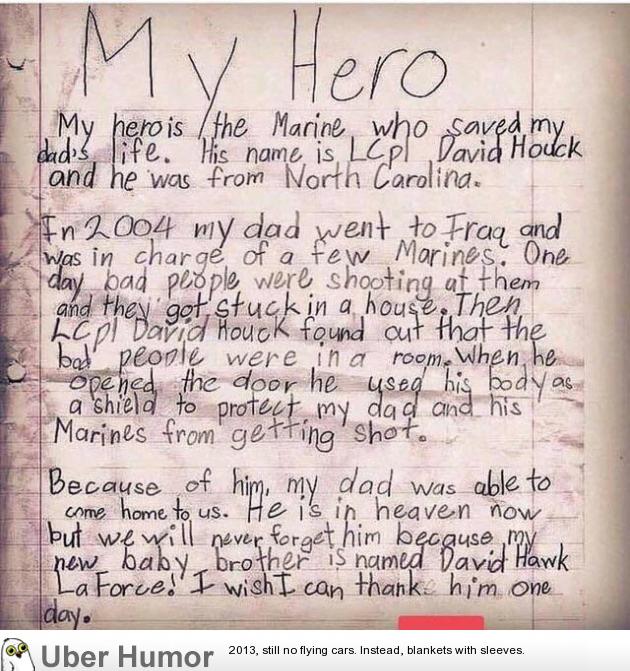 My Hero
My hero is the Marine who saved my
dad's life. His name is LCpl David Houck
and he was from North Carolina.
In 2004 my dad went to Iraq and
was in charge of a few Marines. One
day bad people were shooting at them
and they got stuck in a house. Then
LCpl David Houck found out that the
bad people were in a room. When he
opened the door he used his body as
a shield to protect my dad and his
Marines from getting shot.
Because of him, my dad was able to
come home to us. He is in heaven now
but we will never forget him because my
new baby brother is named David Hawk
LaForce! I wish I can thank him one
day.
Uber Humor
2013, still no flying cars. Instead, blankets with sleeves.